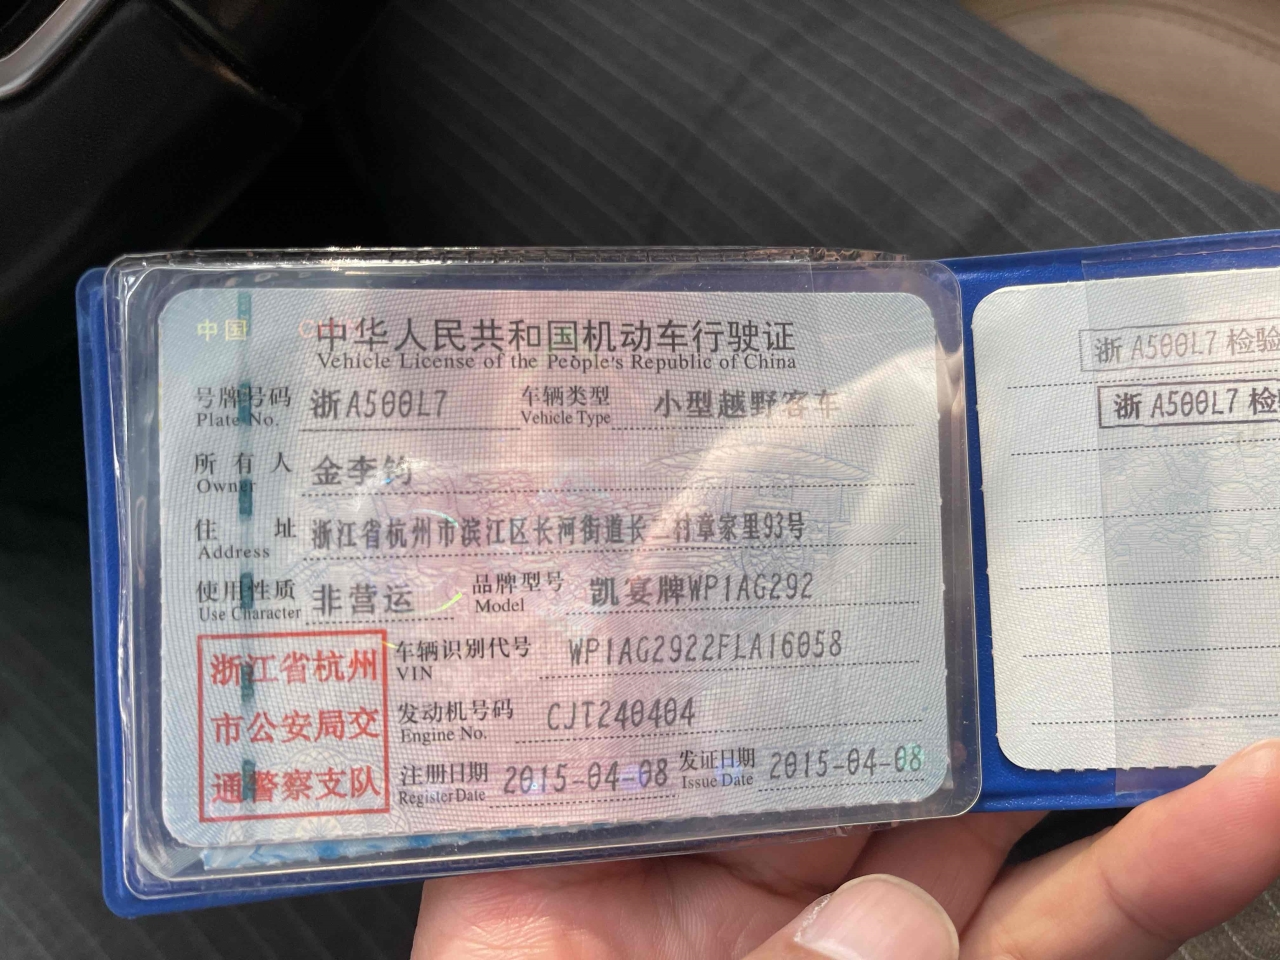 中国
中华人民共和国机动车行驶证
Vehicle License of the People's Republic of China
号牌号码 浙A500L7 车辆类型 小型越野客车
Plate No. Vehicle Type
所有人 金李钧
Owner
住址 浙江省杭州市滨江区长河街道长二村章家里93号
Address
使用性质 非营运 品牌型号 凯宴牌WP1AG292
Use Character Model
浙江省杭州
市公安局交
通警察支队
车辆识别代号 WP1AG2922FLA16058
VIN
发动机号码 CJT240404
Engine No.
注册日期 2015-04-08 发证日期 2015-04-08
Register Date Issue Date
浙A500L7 检验
浙A500L7 检